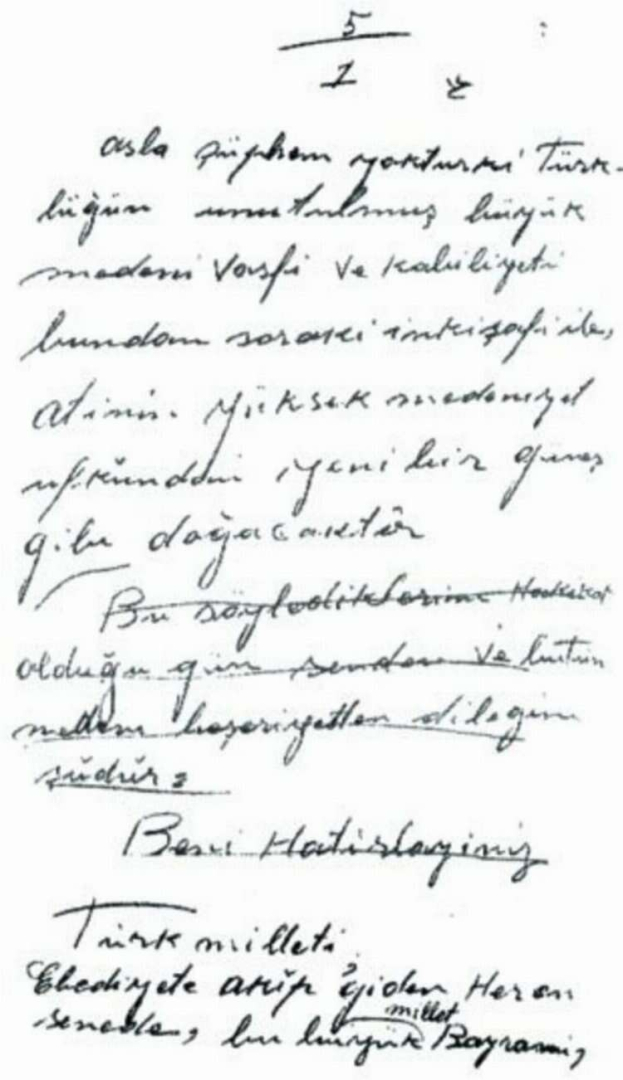 5
1
asla şüphem yoktur ki Türk-
lüğün unutulmuş büyük
medeni vasfi ve kabiliyeti
bundan sonraki inkişafi ile,
atinin yüksek medeniyet
ufkundan yeni bir güneş
gibi doğacaktır
Bu söylediklerim Hakikat
olduğu gün senden ve bütün
medeni beşeriyetten dileğim
şudur:
Beni Hatırlayınız
Türk milleti,
Ebediyete akıp giden Her on
senede, bu büyük millet Bayramı,